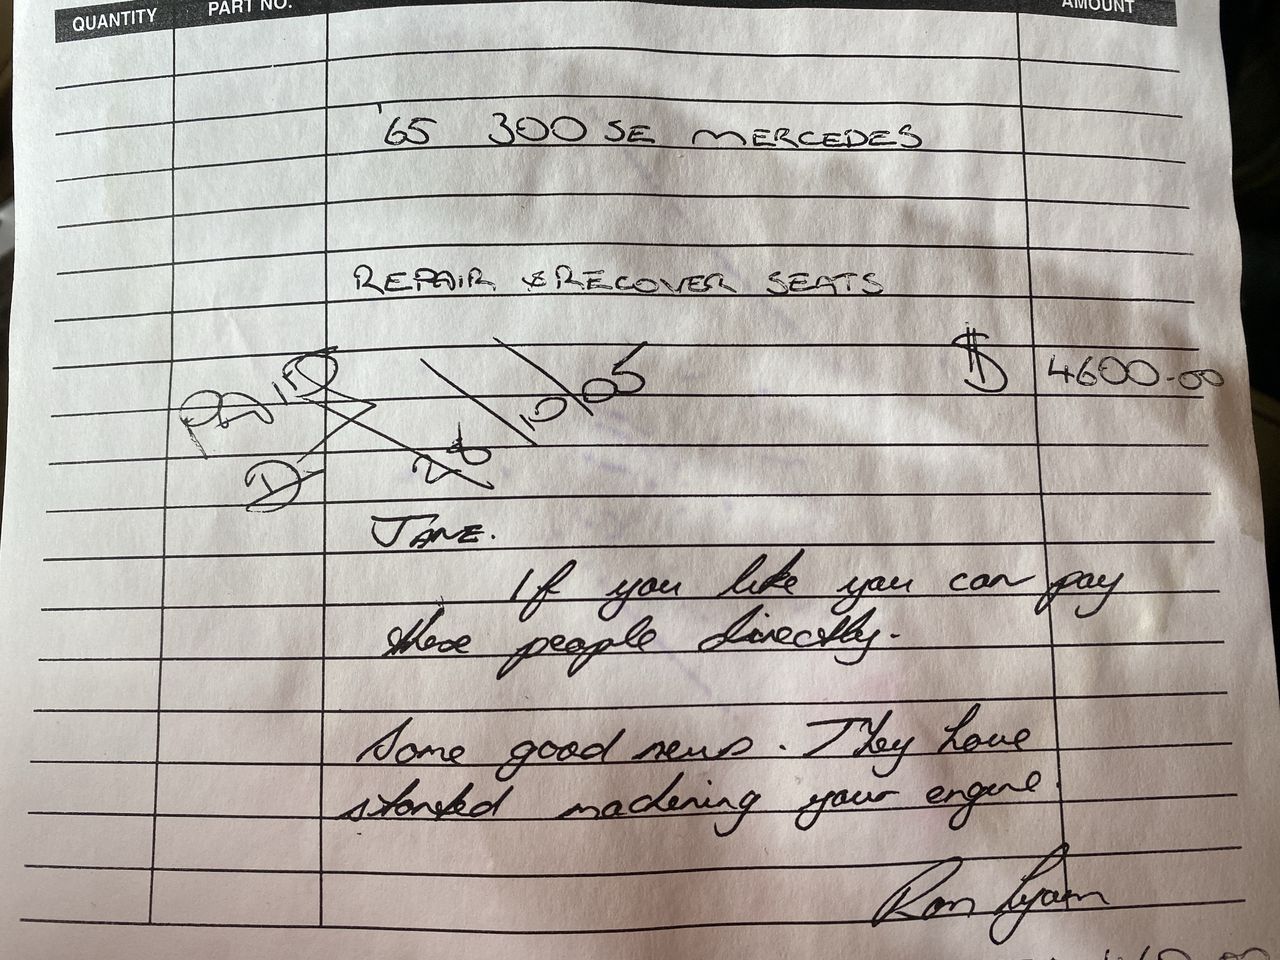 QUANTITY PART NO. AMOUNT
'65 300 SE MERCEDES
REPAIR & RECOVER SEATS
$ 4600.00
PAID
JANE.
If you like you can pay
these people directly.
Some good news. They have
started machining your engine.
Ron